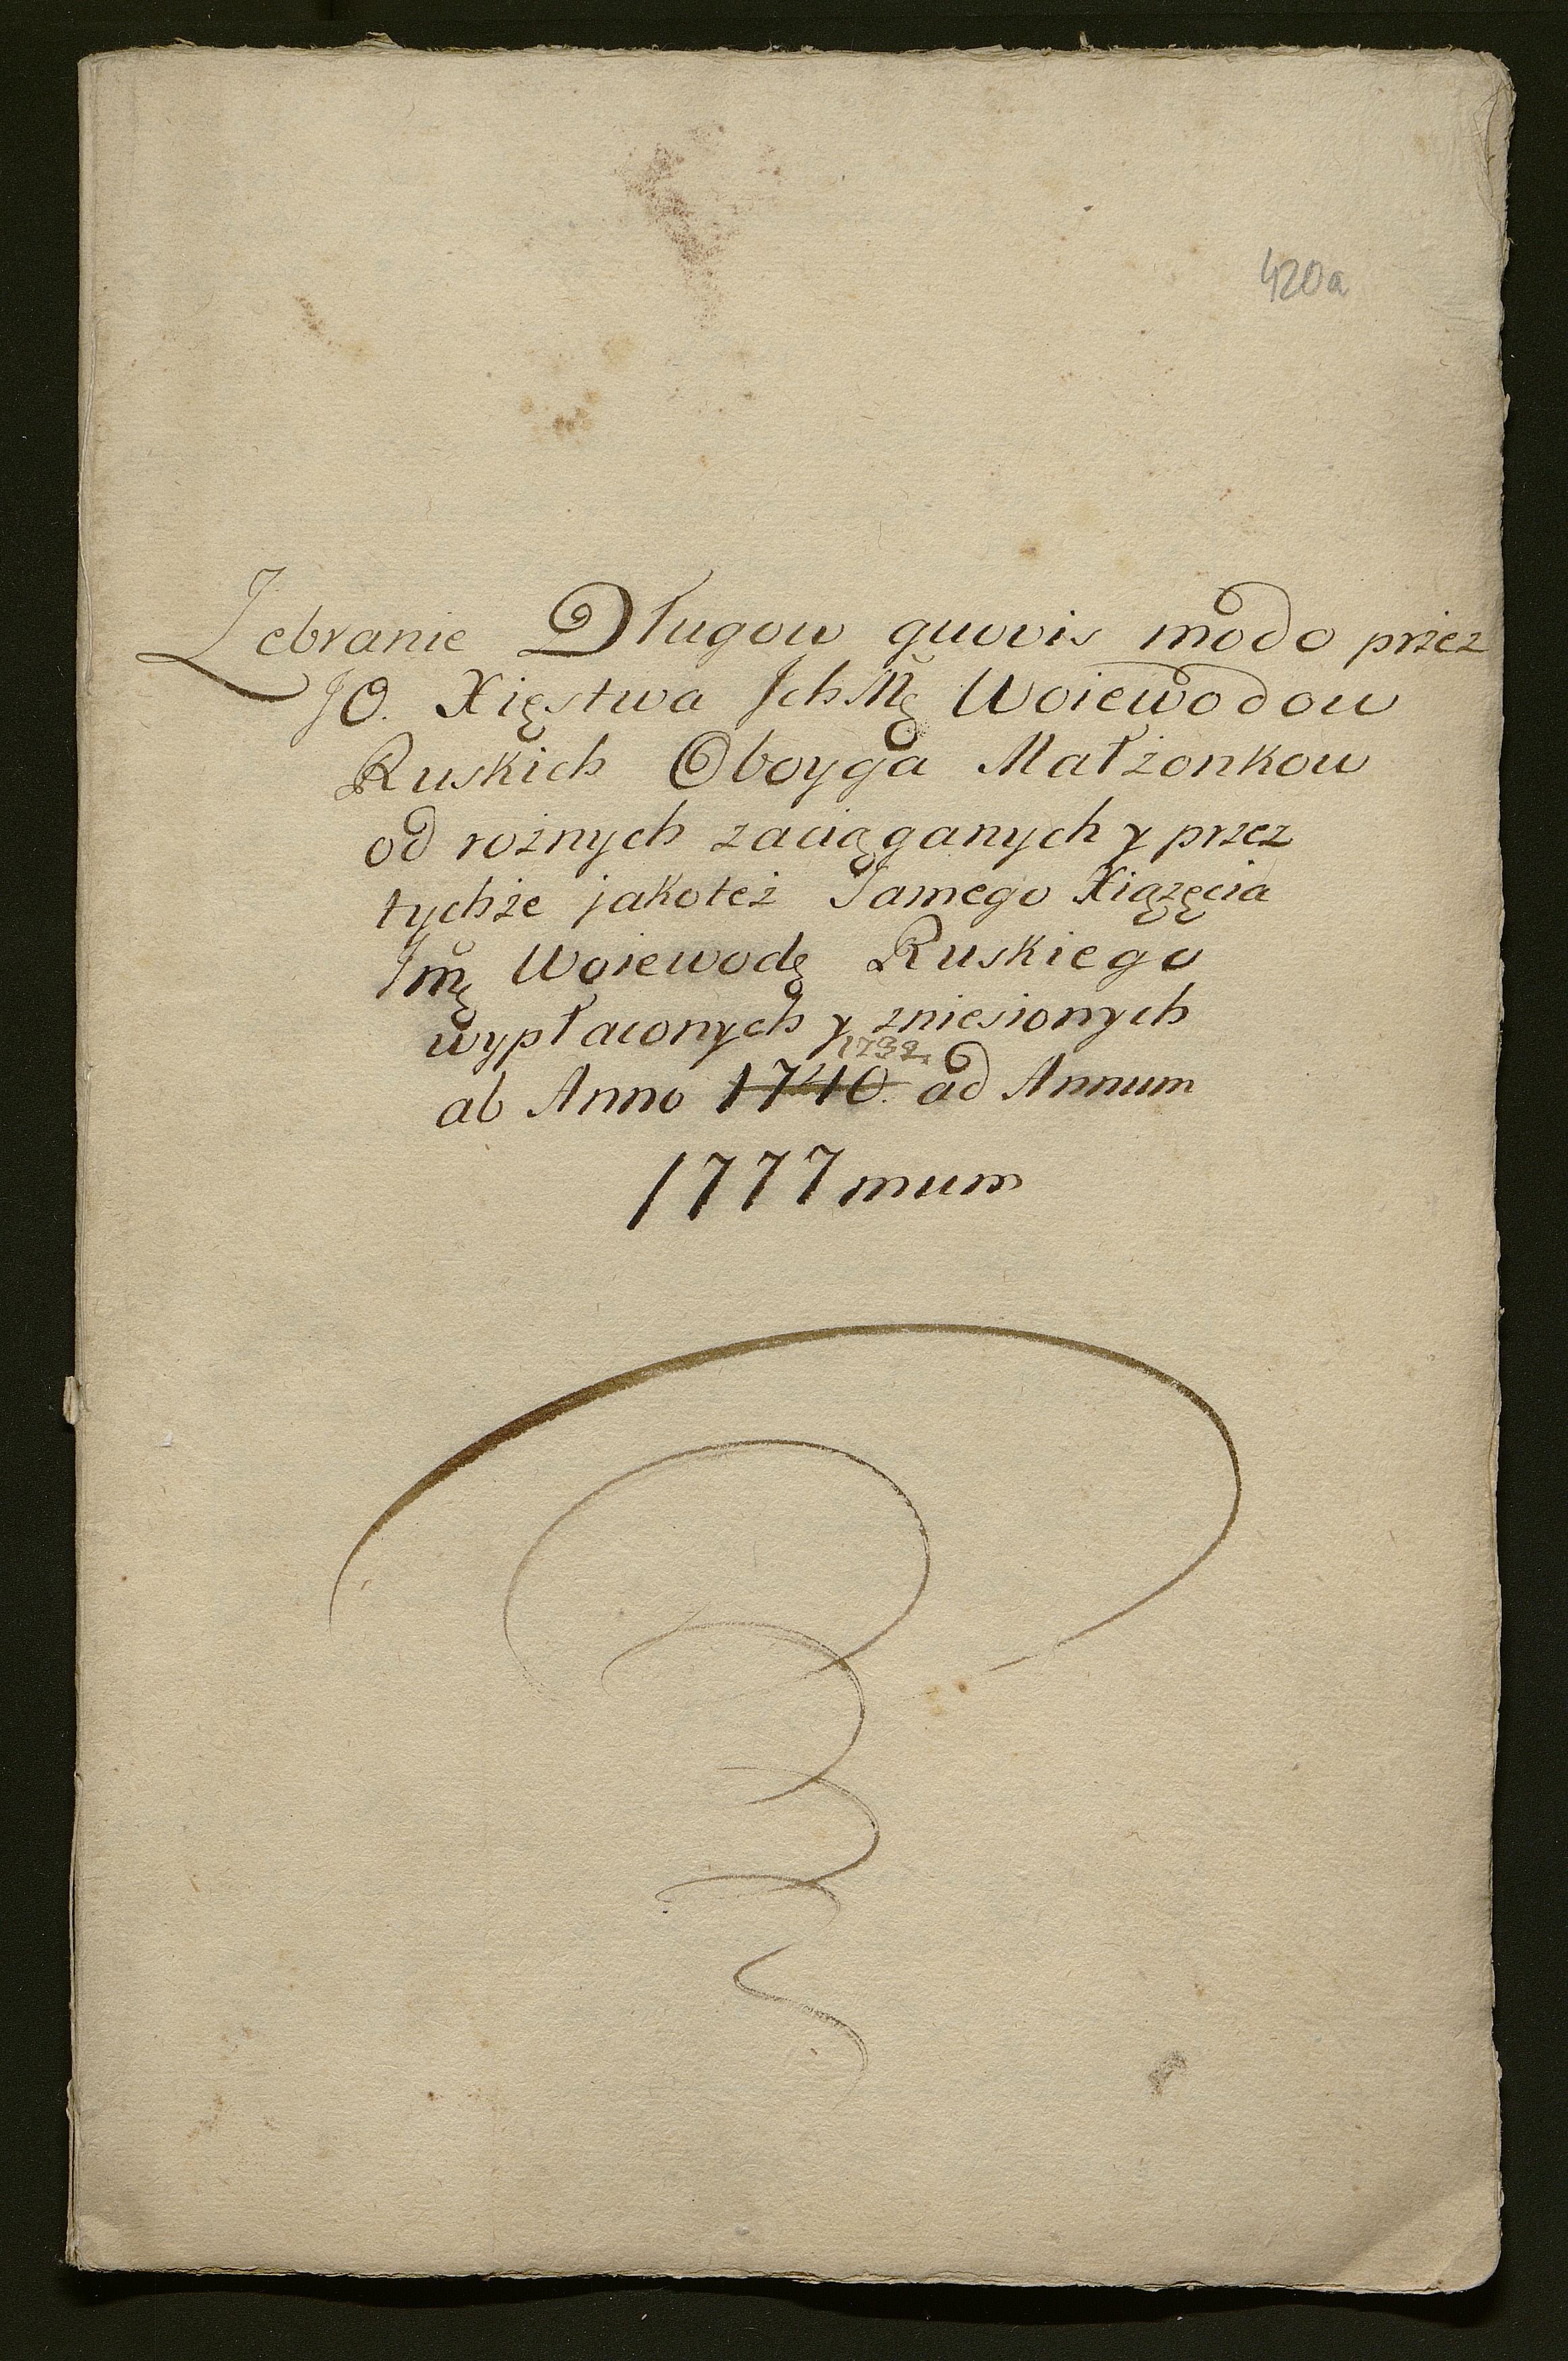 420a
Zebranie Długow quovis modo przez
JO. Xięstwa Ichmę Woiewodow
Ruskich Oboyga Małżonkow
od rożnych zaciąganych y przez
tychże jakoteż Samego Xiążęcia
Jmę Woiewodę Ruskiego
wypłaconych y zniesionych
ab Anno 1740. ad Annum
1777mum